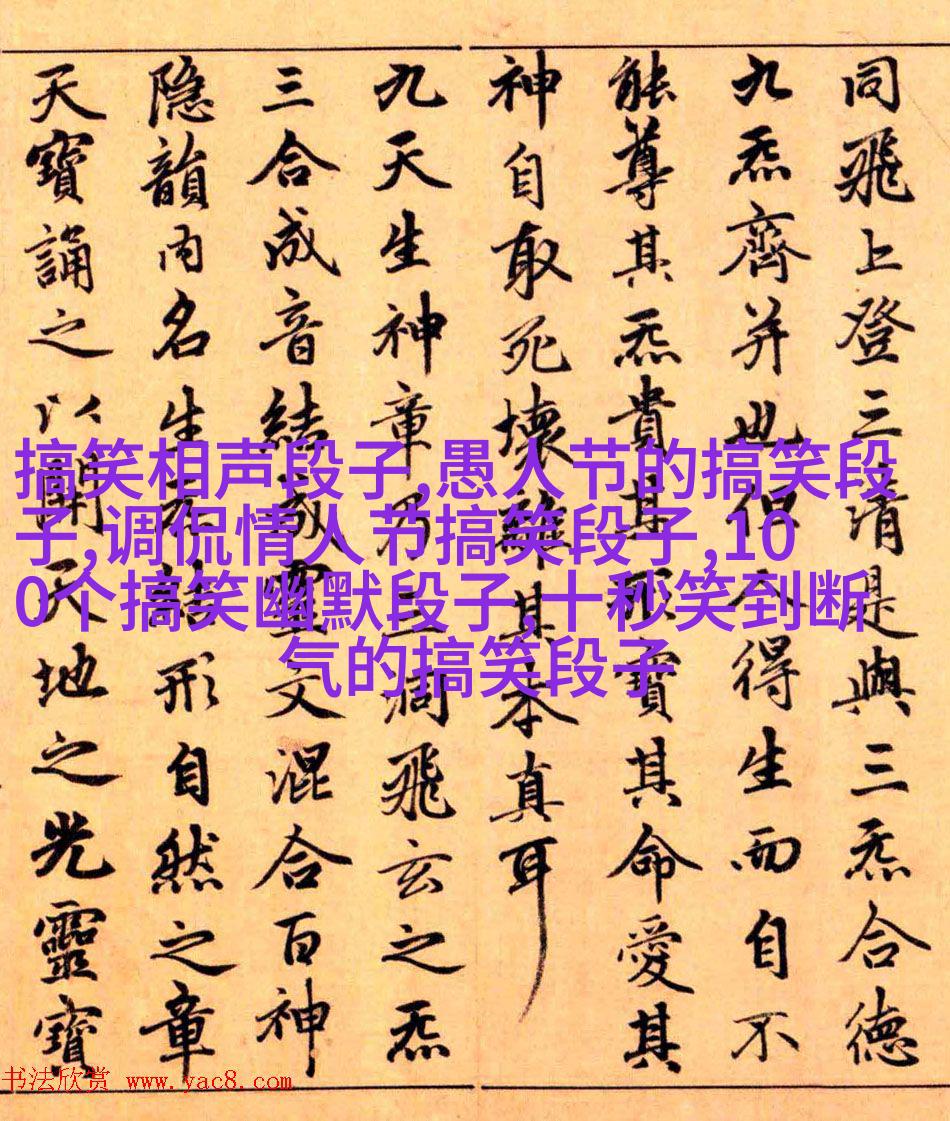 同飛上登三清是與三炁合德
九炁齊并也但人得生而自不
能尊其炁貴其形寶其命愛其
神自取死壞離其本真耳
九天生神章乃三洞飛玄之炁
三合成音結成靈文混合百神
隐韻内名生炁結形自然之章
天寶誦之以開天地之光靈寶
搞笑相声段子,愚人节的搞笑段
子,调侃情人节搞笑段子,10
0个搞笑幽默段子,十秒笑到断
气的搞笑段子
书法欣赏 www.yac8.com